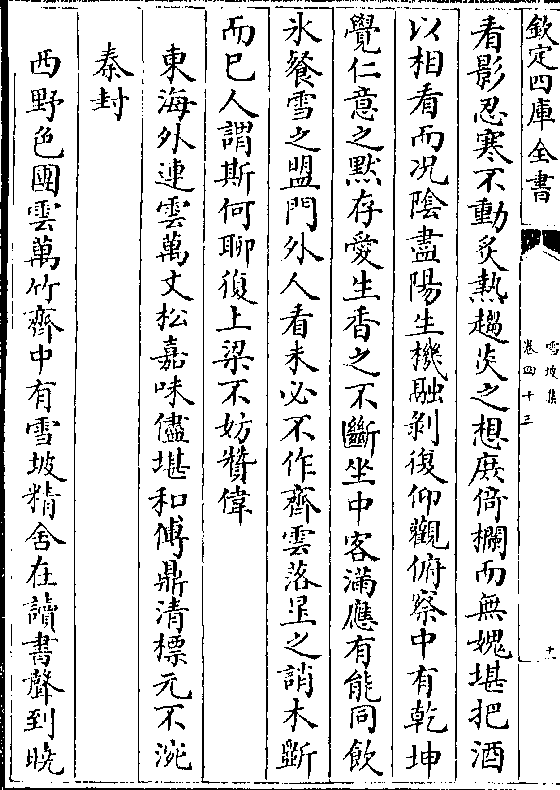 欽定四庫全書
雪坡集
卷四十三
十
看影忍寒不動炙熱趨炎之想庶倚欄而無媿堪把酒
以相看而況陰盡陽生機融剝復仰觀俯察中有乾坤
覺仁意之黙存愛生香之不斷坐中客滿應有能同飲
氷餐雪之盟門外人看未必不作齊雲落星之誚木斵
而已人謂斯何聊復上梁不妨贊偉
東海外連雲萬丈松嘉味儘堪和傅鼎清標元不涴
秦封
西野色團雲萬竹齊中有雪坡精舍在讀書聲到晚